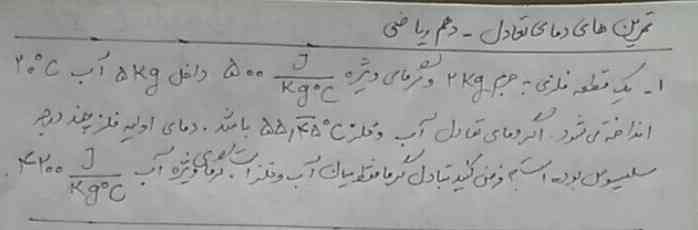 تمرین های دمای تعادل - دهم ریاضی
۱- یک قطعه فلزی به جرم ۲ Kg و گرمای ویژه ۵۰۰ J/Kg°C داخل ۵ Kg آب ۲۰°C
انداخته می شود. اگر دمای تعادل آب و فلز ۵۵٫۴۵°C باشد. دمای اولیه فلز چند درجه
سلسیوس بوده است؟ فرض کنید تبادل گرما فقط میان آب و فلز است. گرمای ویژه آب ۴۲۰۰ J/Kg°C